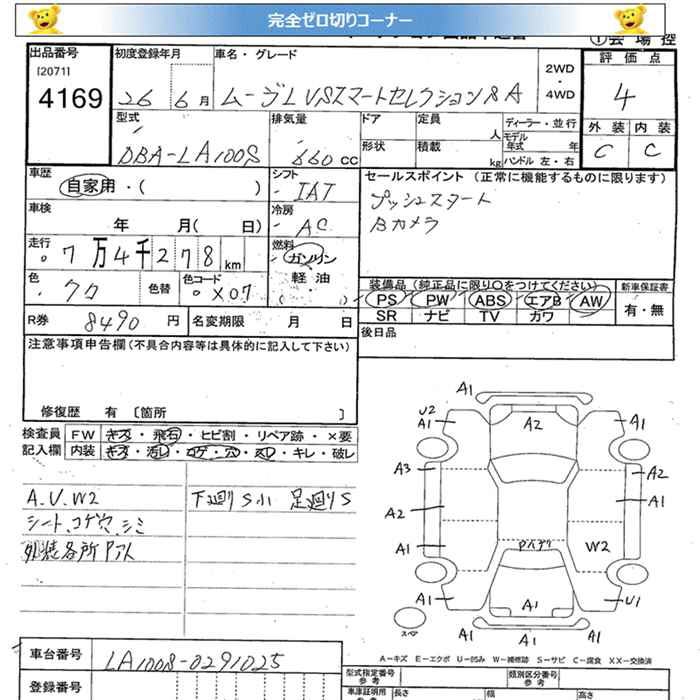 完全ゼロ切りコーナー
①会 場 控
出品番号 初度登録年月 車名・グレード 2WD ・ 4WD 評 価 点
[2071]
4169 26 6月 ムーヴL VSスマートセレクションSA 4
型式 排気量 ドア 定員 人 ディーラー・並行 モデル年式 年 外 装 内 装
DBA-LA100S 660 cc 形状 積載 kg ハンドル 左・右 C C
車歴 自家用・( ) シフト IAT セールスポイント (正常に機能するものに限ります)
車検 年 月( 日) 冷房 AC プッシュスタート
Bカメラ
走行 7万4千278km 燃料 ガソリン 軽油 ・ ( )
色 クロ 色替 色コード X07
装備品 (純正品に限り○をつけてください) 新車保証書
PS PW ABS エアB AW 有・無
SR ナビ TV カワ
R券 8490 円 名変期限 月 日 後日品
注意事項申告欄(不具合内容等は具体的に記入して下さい)
修復歴 有 [箇所 ]
検査員 FW キズ・飛石・ヒビ割・リペア跡・×要
記入欄 内装 キズ・汚レ・コゲ・穴・スレ・キレ・破レ
A.U.W2 下廻りS小 足廻りS
シート、コゲ穴、シミ
外装各所P、スト
A1
U2 A1 A2 A1
A3 A2
A2 A1
A1 W2
A1 A1 U1
A1
スペア
A－キズ E－エクボ U－凹み W－補修跡 S－サビ C－腐食 XX－交換済
車台番号 LA100S-0291025
登録番号
型式指定番号 参考 類別区分番号 参考
車庫証明用 参考 長さ 幅 高さ